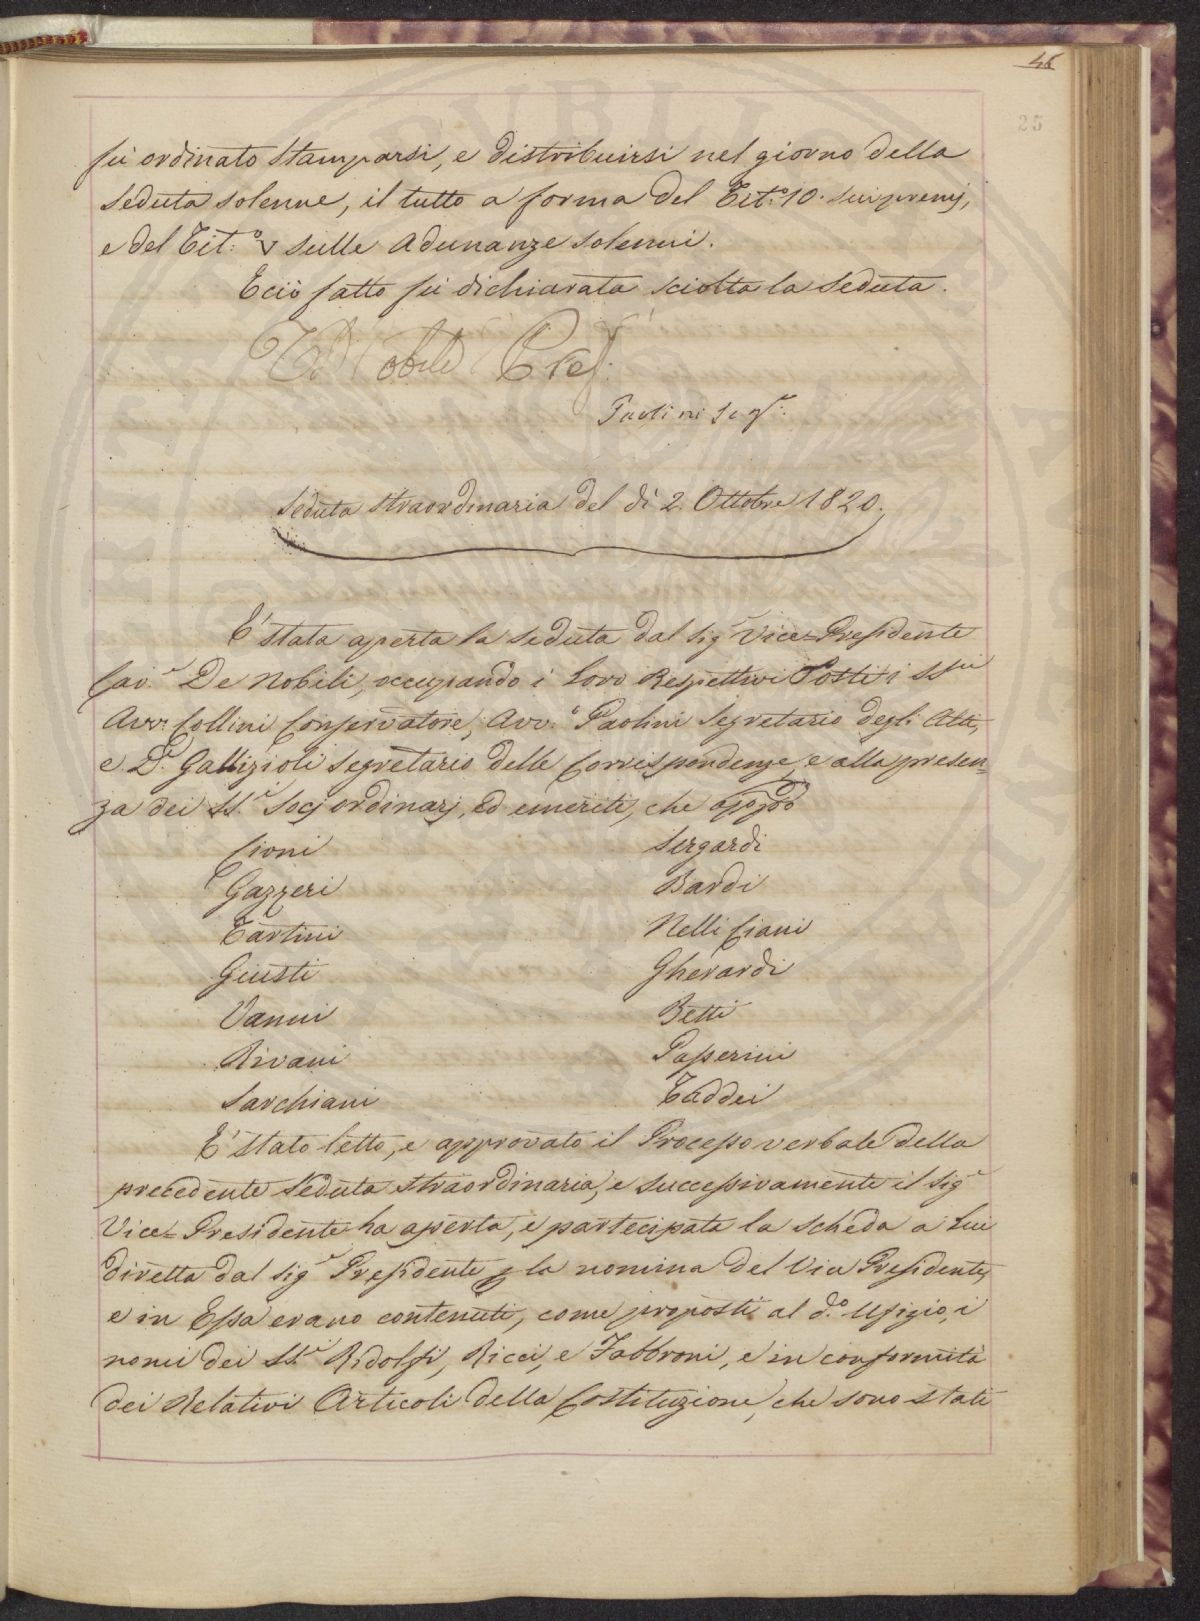 46
25
fù ordinato stamparsi, e distribuirsi nel giorno della
Seduta solenne, il tutto a forma del Tit.º 10. sui premj,
e del Tit.º V sulle Adunanze solenni.
E ciò fatto fù dichiarata sciolta la Seduta.
De Nobili Pres.
Paolini Seg.º
Seduta straordinaria del dì 2. Ottobre 1820.
E' stata aperta la seduta dal Sigr Vice=Presidente
Cav.r De Nobili, occupando i Loro Respettivi Posti i SSri
Avv. Collini Conservatore, Avv.º Paolini Segretario degli Atti,
e D.r Gallizioli Segretario delle Corrispondenze, e alla presen=
za dei SS.ri Socj ordinarj, ed emeriti, che
Cioni
Sergardi
Gazzeri
Bardi
Tartini
Nelli Ciani
Giusti
Gherardi
Vanni
Betti
Rivani
Passerini
Sarchiani
Taddei
E' stato letto, e approvato il Processo verbale della
precedente Seduta straordinaria, e successivamente il Sigr
Vice=Presidente ha aperta, e partecipata la scheda a Lui
diretta dal Sigr Presidente p la nomina del Vice Presidente,
e in Essa erano contenuti, come proposti al d.º Ufizio, i
nomi dei SS.ri Ridolfi, Ricci, e Fabbroni, e in conformità
dei Relativi Articoli della Costituzione, che sono stati